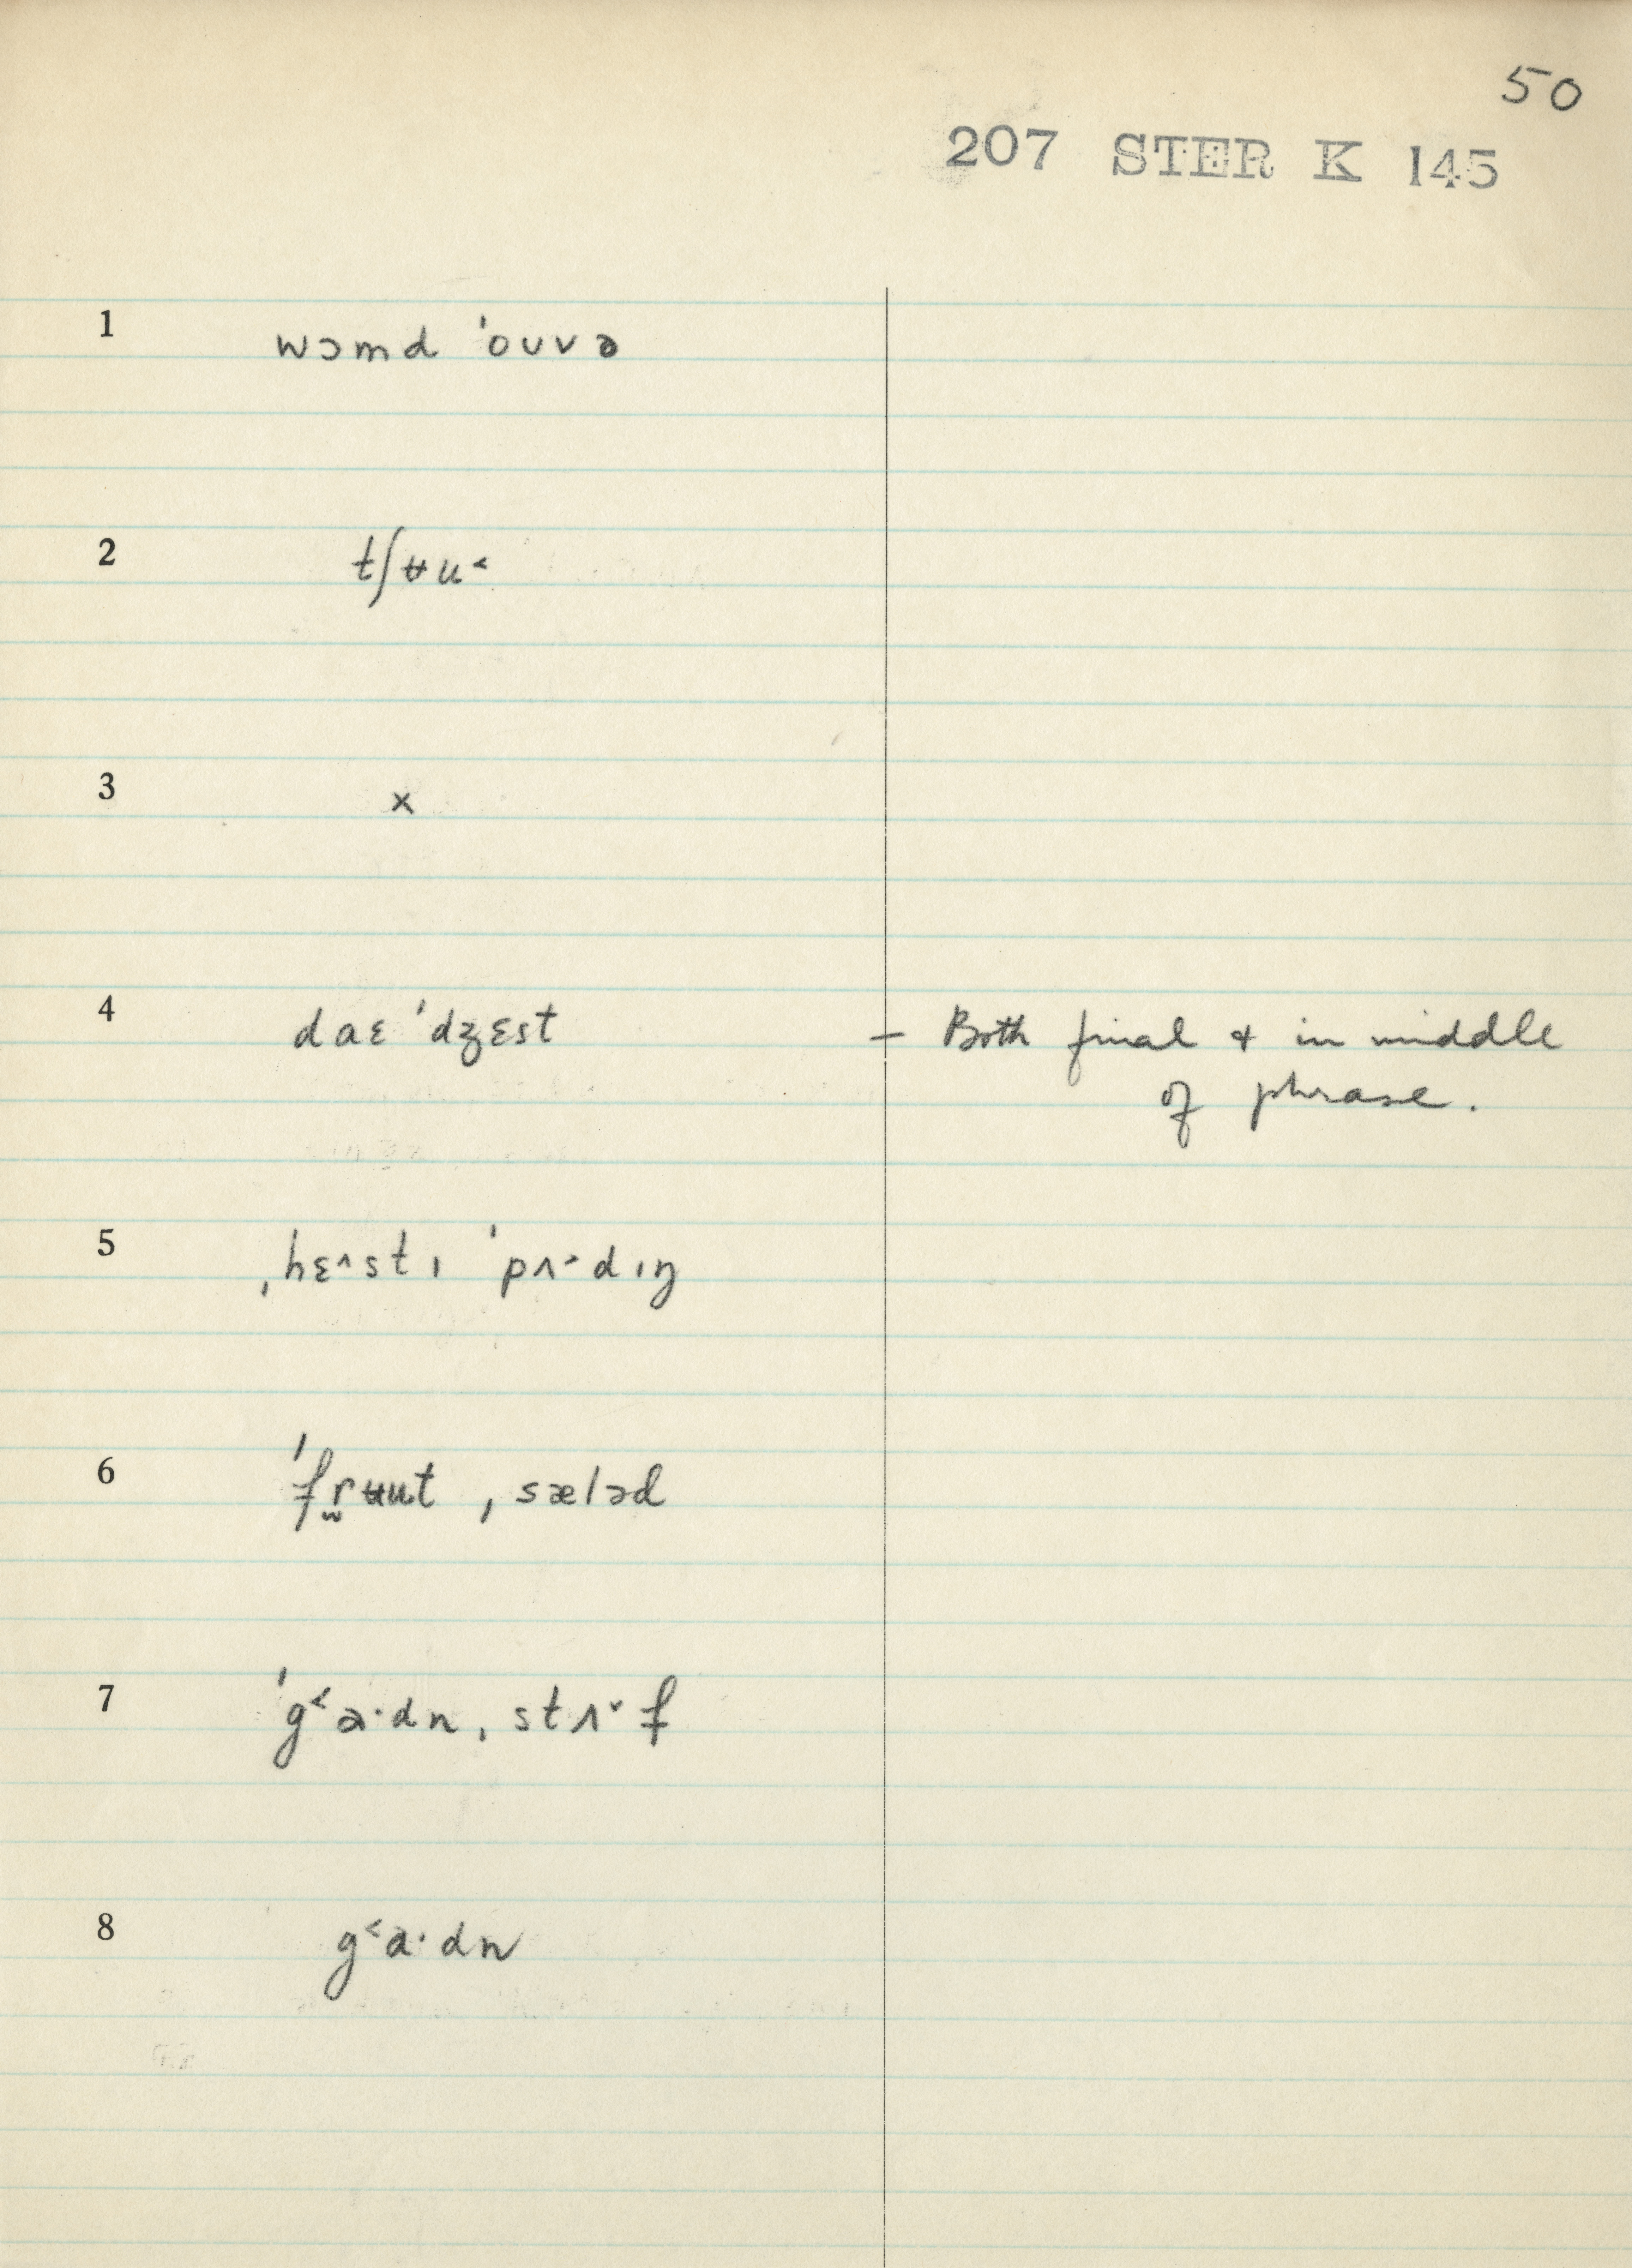 50
207 STER K 145
1 wɔmd ˈouvə
2 tʃʉu˂
3 x
4 daɛ ˈdʒɛst – Both final & in middle
of phrase.
5 ˌhɛ˄stɪ ˈpʌ˃dɪŋ
6 ˈfr̫ʉut ˌsæləd
7 ˈg˂a·dn ˌstʌ˅f
8 g˂a·dn